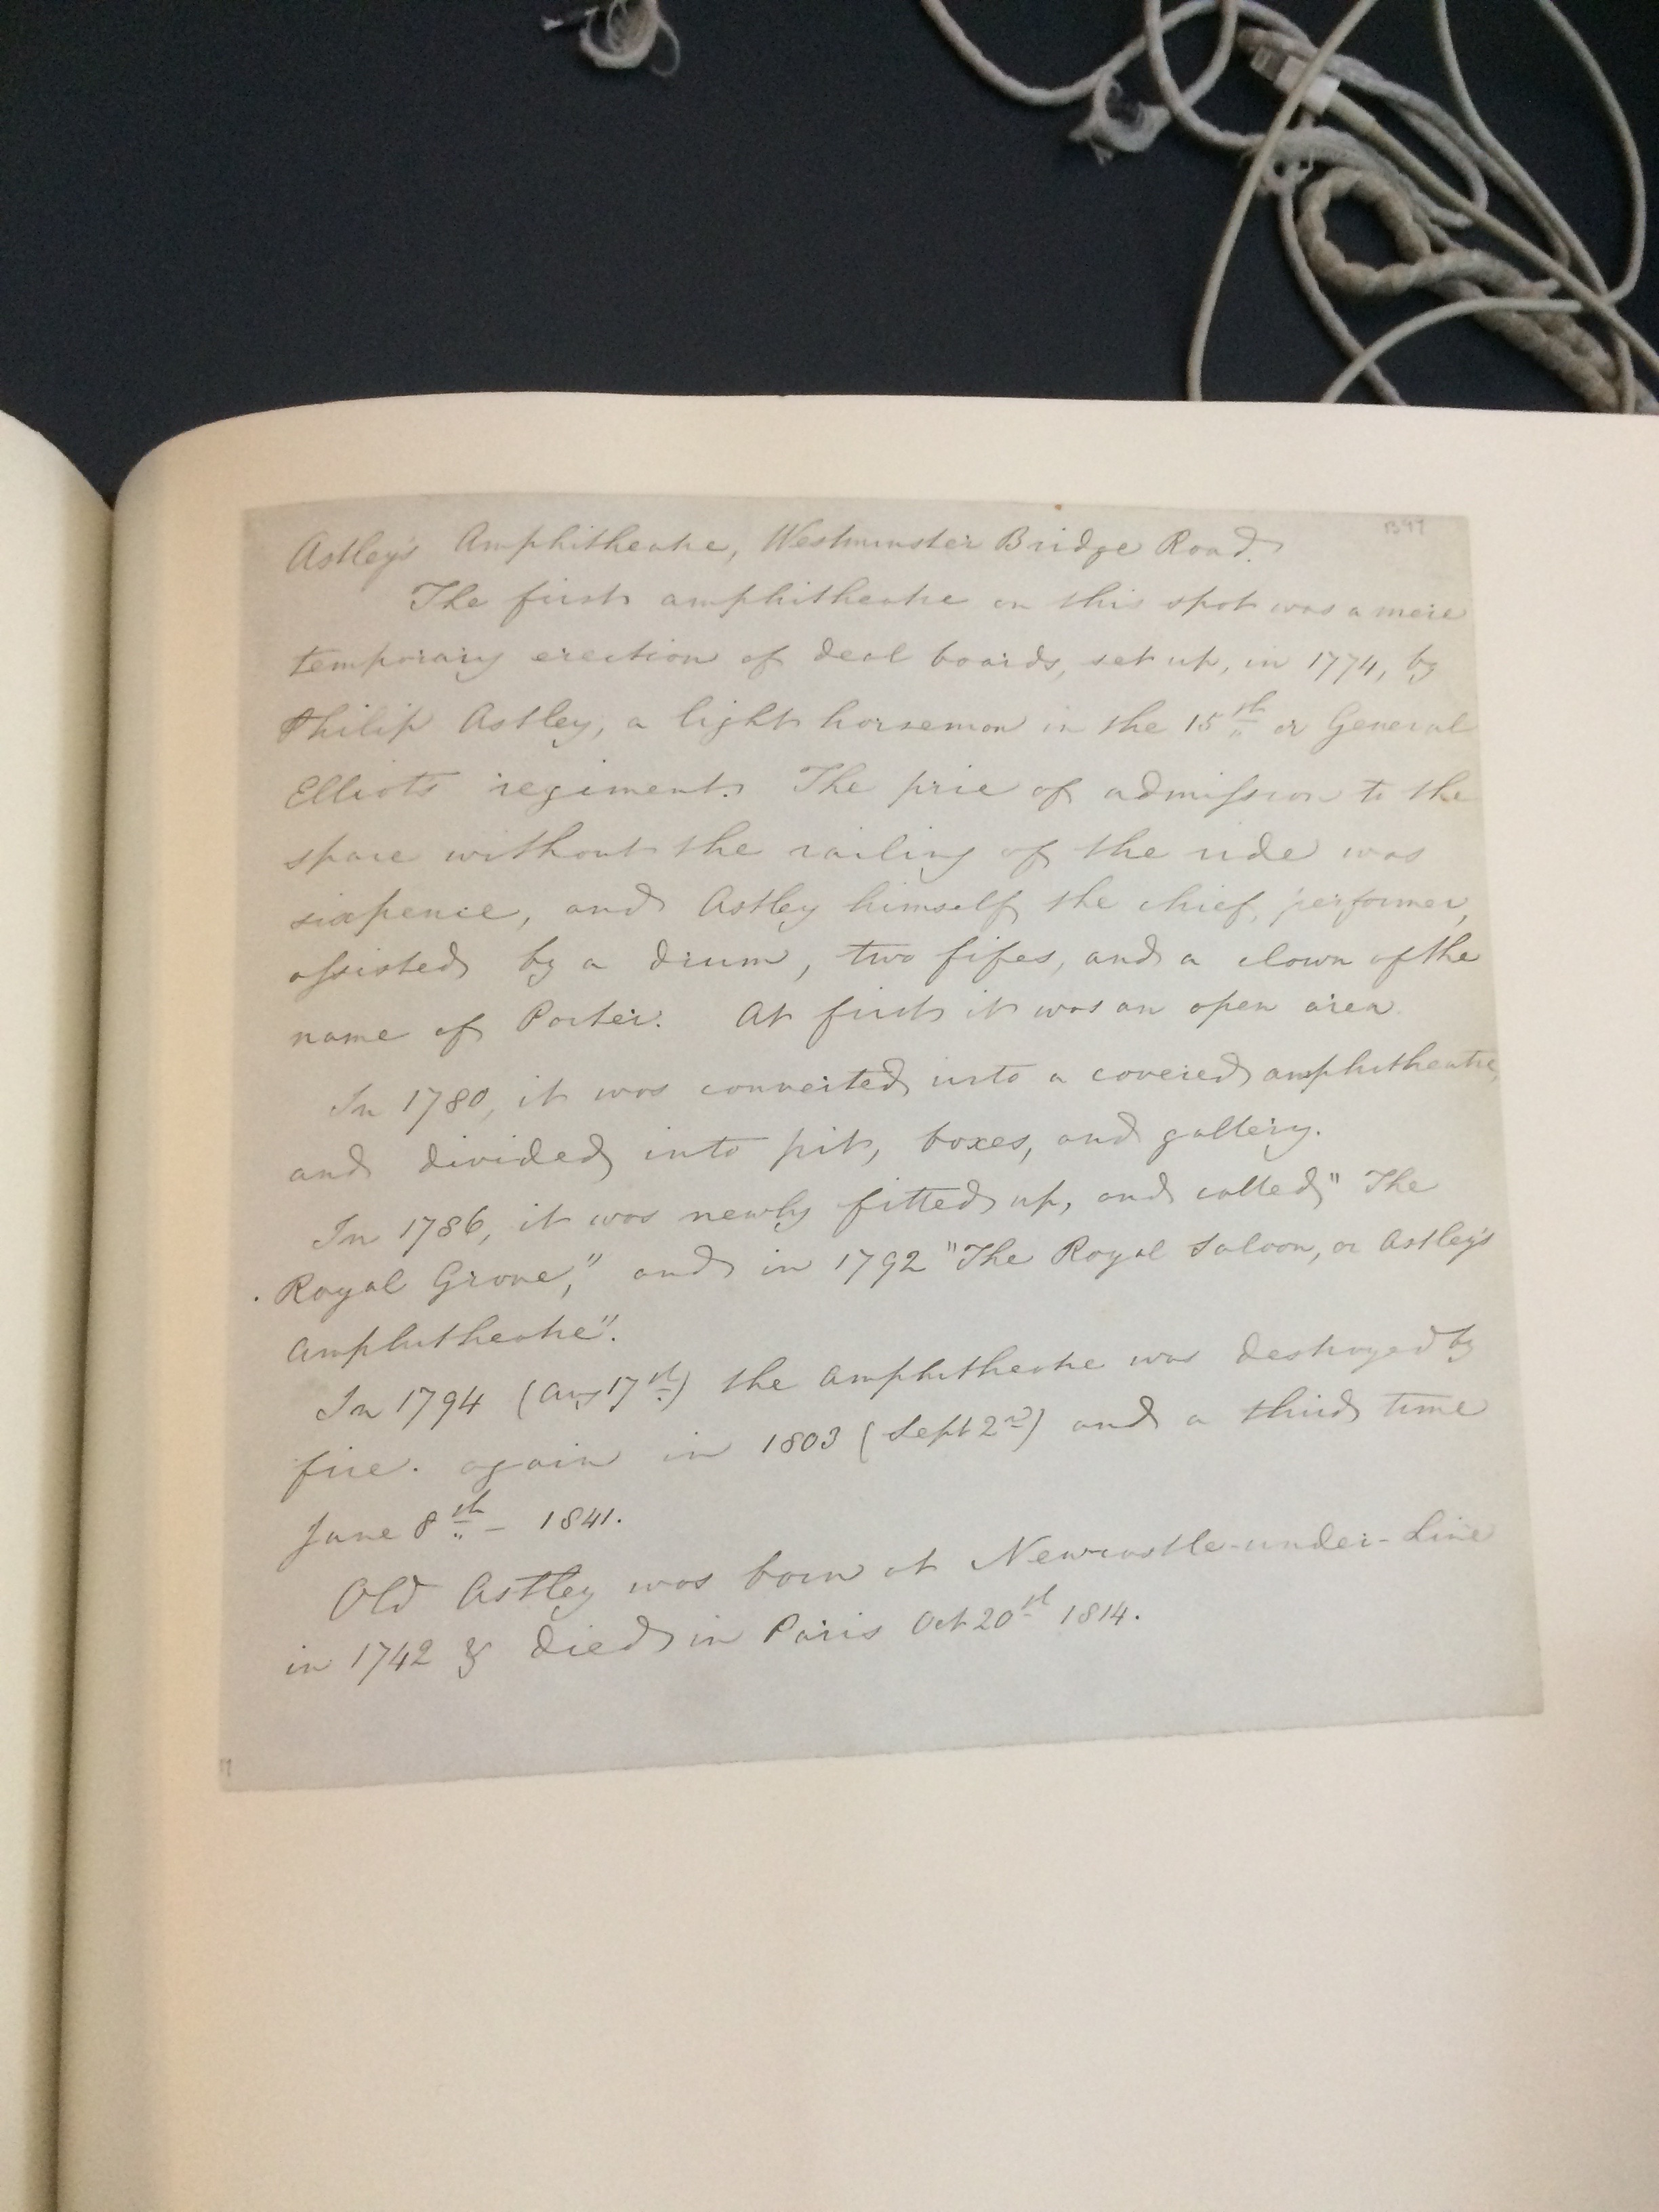 B47
Astley's Amphitheatre, Westminster Bridge Road.
The first amphitheatre on this spot was a mere
temporary erection of deal boards, set up, in 1774, by
Philip Astley, a light horseman in the 15th or General
Elliots regiment. The price of admission to the
space without the railing of the ride was
sixpence, and Astley himself the chief performer,
assisted by a drum, two fifes, and a clown of the
name of Porter. At first it was an open area
In 1780, it was converted into a covered amphitheatre,
and divided into pit, boxes, and gallery.
In 1786, it was newly fitted up, and called "The
Royal Grove," and in 1792 "The Royal Saloon, or Astley's
Amphitheatre".
In 1794 (Aug 17th) the Amphitheatre was destroyed by
fire. again in 1803 (Sept 2nd) and a third time
June 8th - 1841.
Old Astley was born at Newcastle-under-Line
in 1742 & died in Paris Oct 20th 1814.